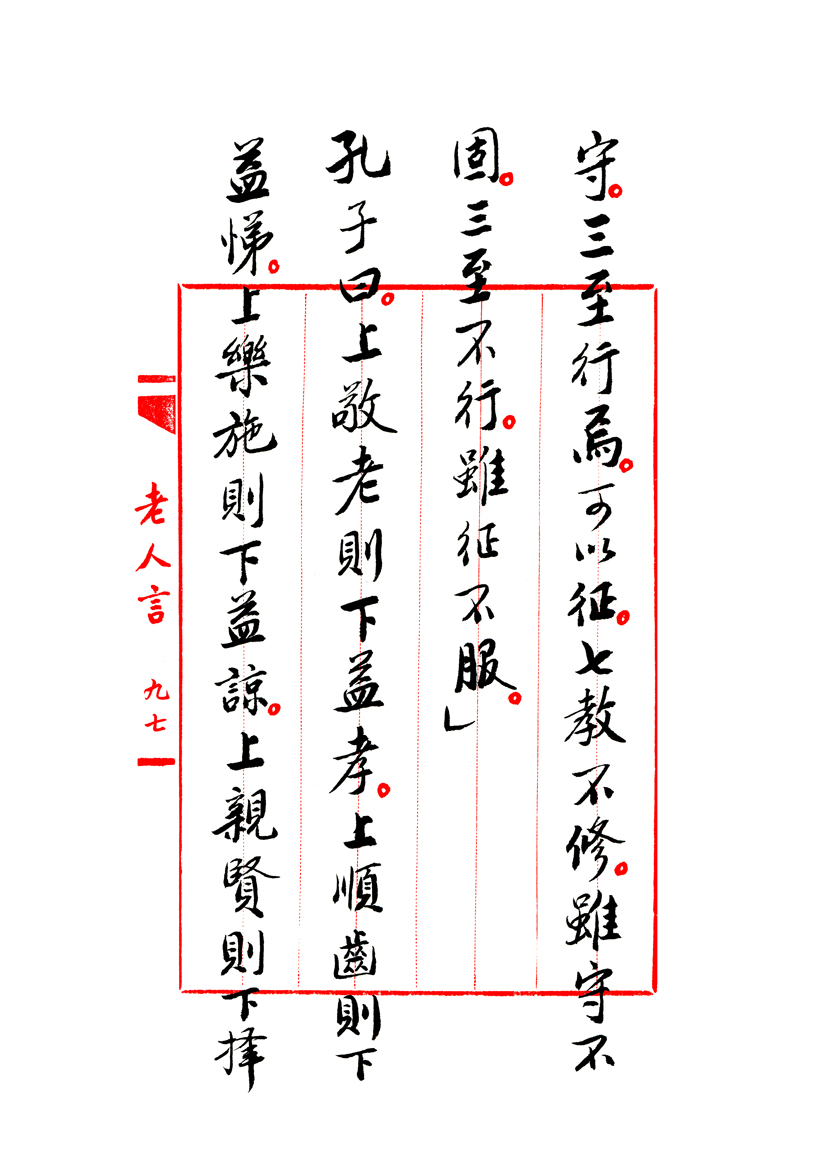 守。三至行焉。可以征。七教不修。雖守不
固。三至不行。雖征不服。」
孔子曰。上敬老則下益孝。上順齒則下
益悌。上樂施則下益諒。上親賢則下擇
老人言 九七